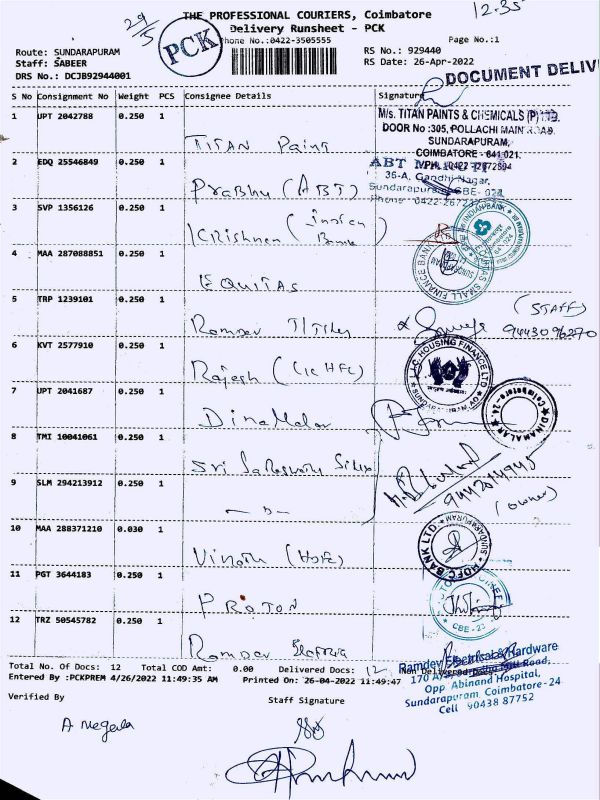 12.35
THE PROFESSIONAL COURIERS, Coimbatore
29/5
PCK
Phone No.:0422-3505555
Delivery Runsheet - PCK
Page No.:1
Route: SUNDARAPURAM
RS No.: 929440
Staff: SABEER
RS Date: 26-Apr-2022
DRS No.: DCJB92944001
DOCUMENT DELIV
S No Consignment No Weight PCS Consignee Details Signature
1 UPT 2042788 0.250 1 TITAN Paint
M/s. TITAN PAINTS & CHEMICALS (P) LTD.
DOOR No :305, POLLACHI MAIN ROAD.
SUNDARAPURAM,
COIMBATORE - 641 021.
2 EDQ 25546849 0.250 1 Prabhu (ABT)
36-A, Gandhi Nagar,
Sundarapuram, CBE- 024
3 SVP 1356126 0.250 1 Krishnan (Indian Bank)
INDIAN BANK
4 MAA 287088851 0.250 1 EQUITAS
EQUITAS SMALL FINANCE BANK LTD
5 TRP 1239101 0.250 1 Ramdev
(STAFF)
6 KVT 2577910 0.250 1 Rajesh (LICHFL)
L.I.C. HOUSING FINANCE LTD
7 UPT 2041687 0.250 1 Dinamalar
DINAMALAR Coimbatore-24.
8 TMI 10041061 0.250 1 Sri Saraswathi
9 SLM 294213912 0.250 1 — " —
9442014945
(owner)
10 MAA 288371210 0.030 1 Vinoth (HDFC)
HDFC BANK LTD. SUNDARAPURAM
11 PGT 3644183 0.250 1 PROTON
CBE-23
12 TRZ 50545782 0.250 1 Ramdev
Ramdev Electrical & Hardware
Opp. Abinand Hospital,
Sundarapuram, Coimbatore-24
Cell 90438 87752
Total No. Of Docs: 12 Total COD Amt: 0.00 Delivered Docs: 12 Non Delivered Docs:
Entered By :PCKPREM 4/26/2022 11:49:35 AM Printed On: 26-04-2022 11:49:47
Verified By Staff Signature
A Megala